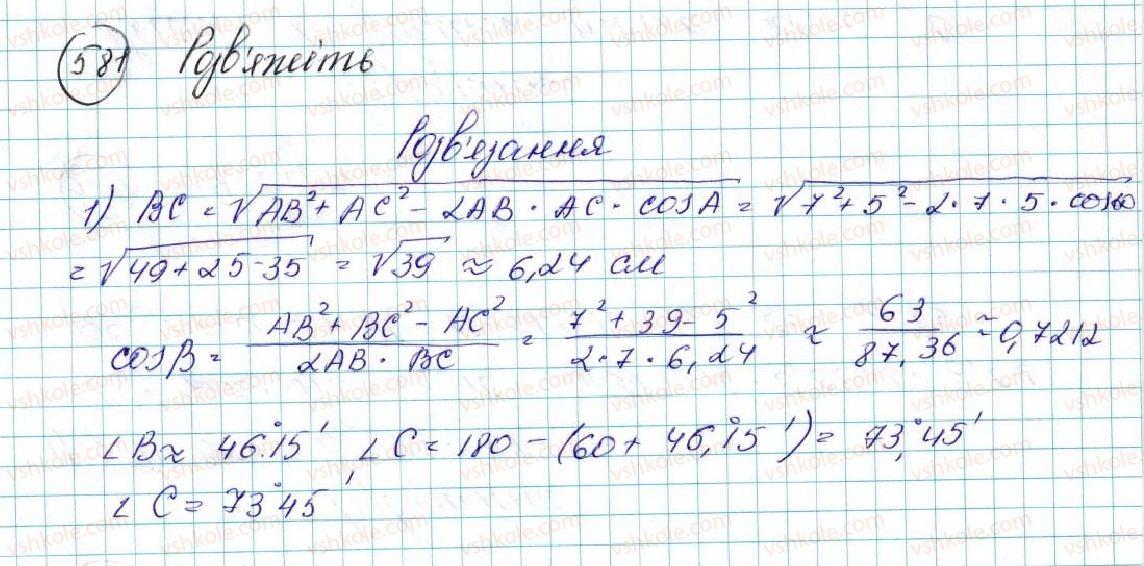 581 Розв'яжіть
Розв'язання
1) BC = √AB² + AC² - 2AB · AC · cosA = √7² + 5² - 2·7·5·cos60
= √49+25-35 = √39 ≈ 6,24 см
cosB = AB² + BC² - AC² / 2AB · BC = 7² + 39 - 5² / 2·7·6,24 ≈ 63 / 87,36 ≈ 0,7212
∠B ≈ 46°15' ∠C = 180 - (60 + 46,°15') = 73,°45'
∠C = 73°45'